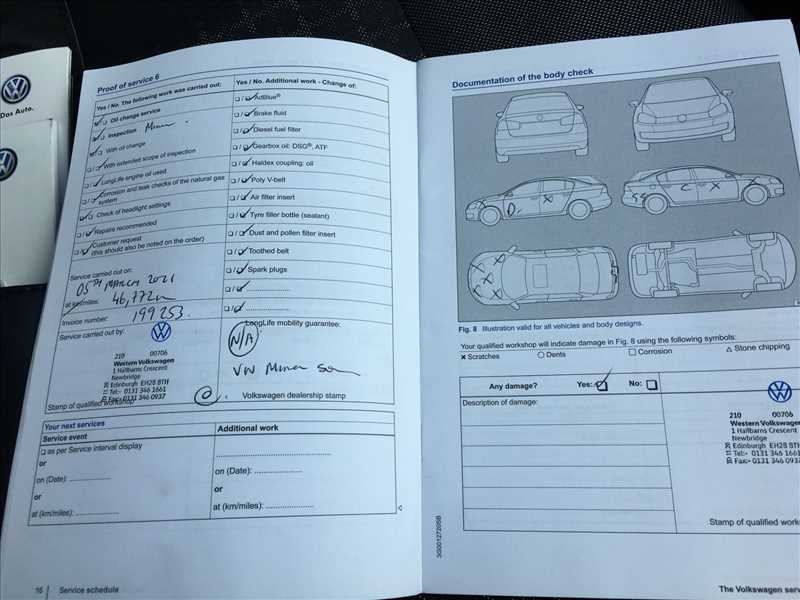 Das Auto.
Proof of service 6
Yes / No. The following work was carried out:
Oil change service
Inspection Minor
With oil change
With extended scope of inspection
LongLife engine oil used
Corrosion and leak checks of the natural gas
system
Check of headlight settings
Repairs recommended
Customer request
(this should also be noted on the order)
Service carried out on:
05TH MARCH 2021
at km/miles: 46,772m
Invoice number: 199253
Service carried out by:
210 00706
Western Volkswagen
1 Hallbarns Crescent
Newbridge
Edinburgh EH28 8TH
Tel:- 0131 346 1661
Fax:- 0131 346 0937
Stamp of qualified workshop
Yes / No. Additional work - Change of:
AdBlue®
Brake fluid
Diesel fuel filter
Gearbox oil: DSG®, ATF
Haldex coupling: oil
Poly V-belt
Air filter insert
Tyre filler bottle (sealant)
Dust and pollen filter insert
Toothed belt
Spark plugs
LongLife mobility guarantee:
N/A
VW Minor
Volkswagen dealership stamp
Your next services
Service event
as per Service interval display
or
on (Date):
or
at (km/miles):
Additional work
on (Date):
or
at (km/miles):
16 Service schedule
Documentation of the body check
Fig. 8 Illustration valid for all vehicles and body designs.
Your qualified workshop will indicate damage in Fig. 8 using the following symbols:
x Scratches ○ Dents □ Corrosion △ Stone chipping
Any damage? Yes: No:
Description of damage:
210 00706
Western Volkswagen
1 Hallbarns Crescent
Newbridge
Edinburgh EH28 8TH
Tel:- 0131 346 1661
Fax:- 0131 346 0937
Stamp of qualified
3G0012720SB
The Volkswagen